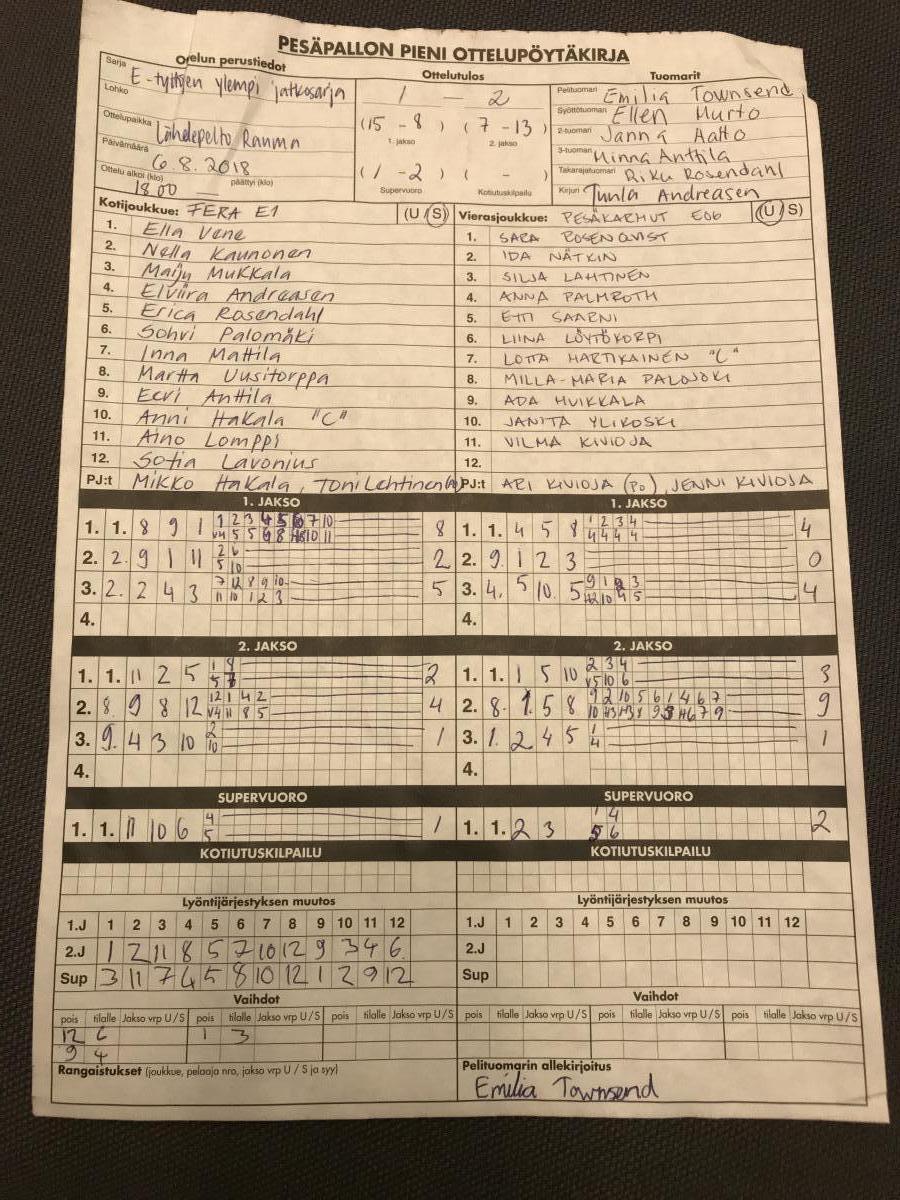 PESÄPALLON PIENI OTTELUPÖYTÄKIRJA
Ottelun perustiedot
Ottelutulos
Tuomarit
Sarja E-tyttöjen ylempi jatkosarja
Lohko
Ottelupaikka Lähdepelto Rauma
Päivämäärä 6.8.2018
Ottelu alkoi (klo) 18.00 päättyi (klo)
1 — 2
(15 - 8) (7 - 13)
1. jakso 2. jakso
(1 - 2) ( - )
Supervuoro Kotiutuskilpailu
Pelituomari Emilia Townsend
Syöttötuomari Ellen Murto
2-tuomari Janna Aalto
3-tuomari Minna Anttila
Takarajatuomari Riku Rosendahl
Kirjuri Tuula Andreasen
Kotijoukkue: FERA E1 (U/S)
1. Ella Vene
2. Nella Kaunonen
3. Maiju Mukkala
4. Elviira Andreasen
5. Erica Rosendahl
6. Sohvi Palomäki
7. Inna Mattila
8. Martta Uusitorppa
9. Eevi Anttila
10. Anni Hakala "C"
11. Aino Lomppi
12. Sofia Lavonius
PJ:t Mikko Hakala, Toni Lehtinen
Vierasjoukkue: PESÄKARHUT E06 (U/S)
1. SARA ROSENQVIST
2. IDA NÄTKIN
3. SILJA LAHTINEN
4. ANNA PALMROTH
5. ETTI SAARNI
6. LIINA LÖYTÖKORPI
7. LOTTA HARTIKAINEN "C"
8. MILLA-MARIA PALOJOKI
9. ADA HUIKKALA
10. JANITA YLIKOSKI
11. VILMA KIVIOJA
12.
PJ:t ARI KIVIOJA (PO), JENNI KIVIOJA
1. JAKSO
1. 1. 8 9 1 8
2. 2. 9 1 11 2 6 2
5 10
3. 2. 2 4 3 7 12 8 9 10 5
11 10 1 2 3
4.
1. JAKSO
1. 1. 4 5 8 1 2 3 4 4
4 4 4 4
2. 9. 1 2 3 0
3. 4. 5 10. 5 4
4.
2. JAKSO
1. 1. 11 2 5 1 8 2
5 7
2. 8. 9 8 12 12 1 4 2 4
V4 11 8 5
3. 9. 4 3 10 2 1
10
4.
2. JAKSO
1. 1. 1 5 10 2 3 4 3
V5 10 6
2. 8. 1. 5 8 9 2 10 5 6 1 4 6 7 9
3. 1. 2 4 5 1 1
4
4.
SUPERVUORO
1. 1. 11 10 6 4 1
5
SUPERVUORO
1. 1. 2 3 1 4 2
5 6
KOTIUTUSKILPAILU
KOTIUTUSKILPAILU
Lyöntijärjestyksen muutos
1.J 1 2 3 4 5 6 7 8 9 10 11 12
2.J 1 2 11 8 5 7 10 12 9 3 4 6
Sup 3 11 7 4 5 8 10 12 1 2 9 12
Lyöntijärjestyksen muutos
1.J 1 2 3 4 5 6 7 8 9 10 11 12
2.J
Sup
Vaihdot
pois tilalle Jakso vrp U/S pois tilalle Jakso vrp U/S pois tilalle Jakso vrp U/S
12 6 1 3
9 4
Vaihdot
pois tilalle Jakso vrp U/S pois tilalle Jakso vrp U/S pois tilalle Jakso vrp U/S
Rangaistukset (joukkue, pelaaja nro, jakso vrp U / S ja syy)
Pelituomarin allekirjoitus
Emilia Townsend